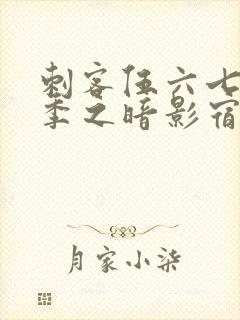 刺客伍六七
季之暗影宿
月家小柒